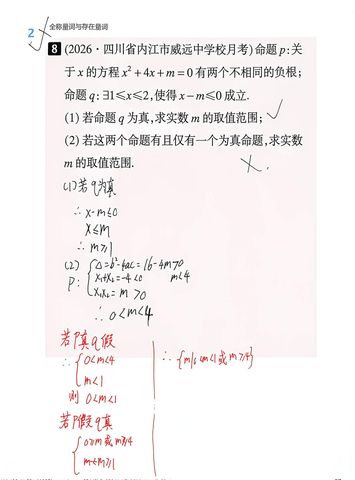 全称量词与存在量词
2
8 (2026·四川省内江市威远中学校月考)命题p:关
于x的方程x²+4x+m=0有两个不相同的负根;
命题q:∃1≤x≤2,使得x-m≤0成立.
(1)若命题q为真,求实数m的取值范围;
(2)若这两个命题有且仅有一个为真命题,求实数
m的取值范围.
(1)若q为真
∴x-m≤0
x≤m
∴m≥1
(2)
P:{Δ=b²-4ac=16-4m>0 m<4
x₁+x₂=-4<0
x₁x₂=m>0
∴0<m<4
若P真q假
∴{0<m<4
m<1
则 0<m<1
若P假q真
{0≥m或m≥4
m≥1
∴{m|0<m<1或m≥4}